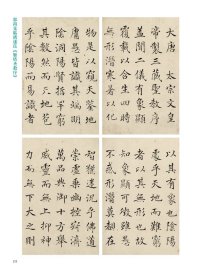 大唐 太宗文皇
帝製三藏聖教序
蓋聞二儀有象顯
覆載以含生四時
無形潛寒暑以化
物是以窺天鑒地
庸愚皆識其端明
陰洞陽賢哲罕窮
其數然而天地苞
乎陰陽而易識者
以其有象也陰陽
處乎天地而難窮
者以其無形也故
知象顯可徵雖愚
不惑形潛莫覩在
智猶迷況乎佛道
崇虛乘幽控寂弘
濟萬品典御十方舉
威靈而無上抑神
力而無下大之則